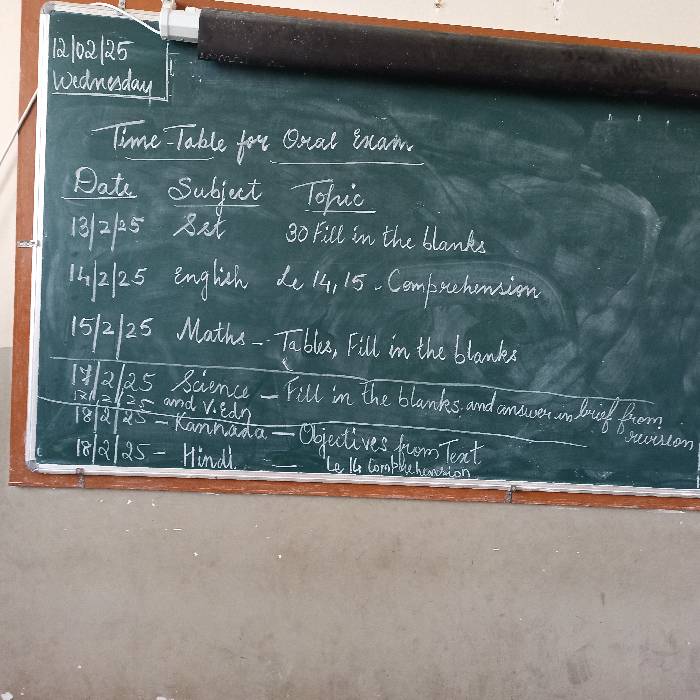 12/02/25
Wednesday
Time Table for Oral Exam
Date Subject Topic
13/2/25 Sst 30 Fill in the blanks
14/2/25 English Le 14, 15 - Comprehension
15/2/25 Maths - Tables, Fill in the blanks
17/2/25 Science - Fill in the blanks and answer in brief from revision
17/2/25 and V.Edn
18/2/25 - Kannada - Objectives from Text
18/2/25 - Hindi - Le 14 Comprehension